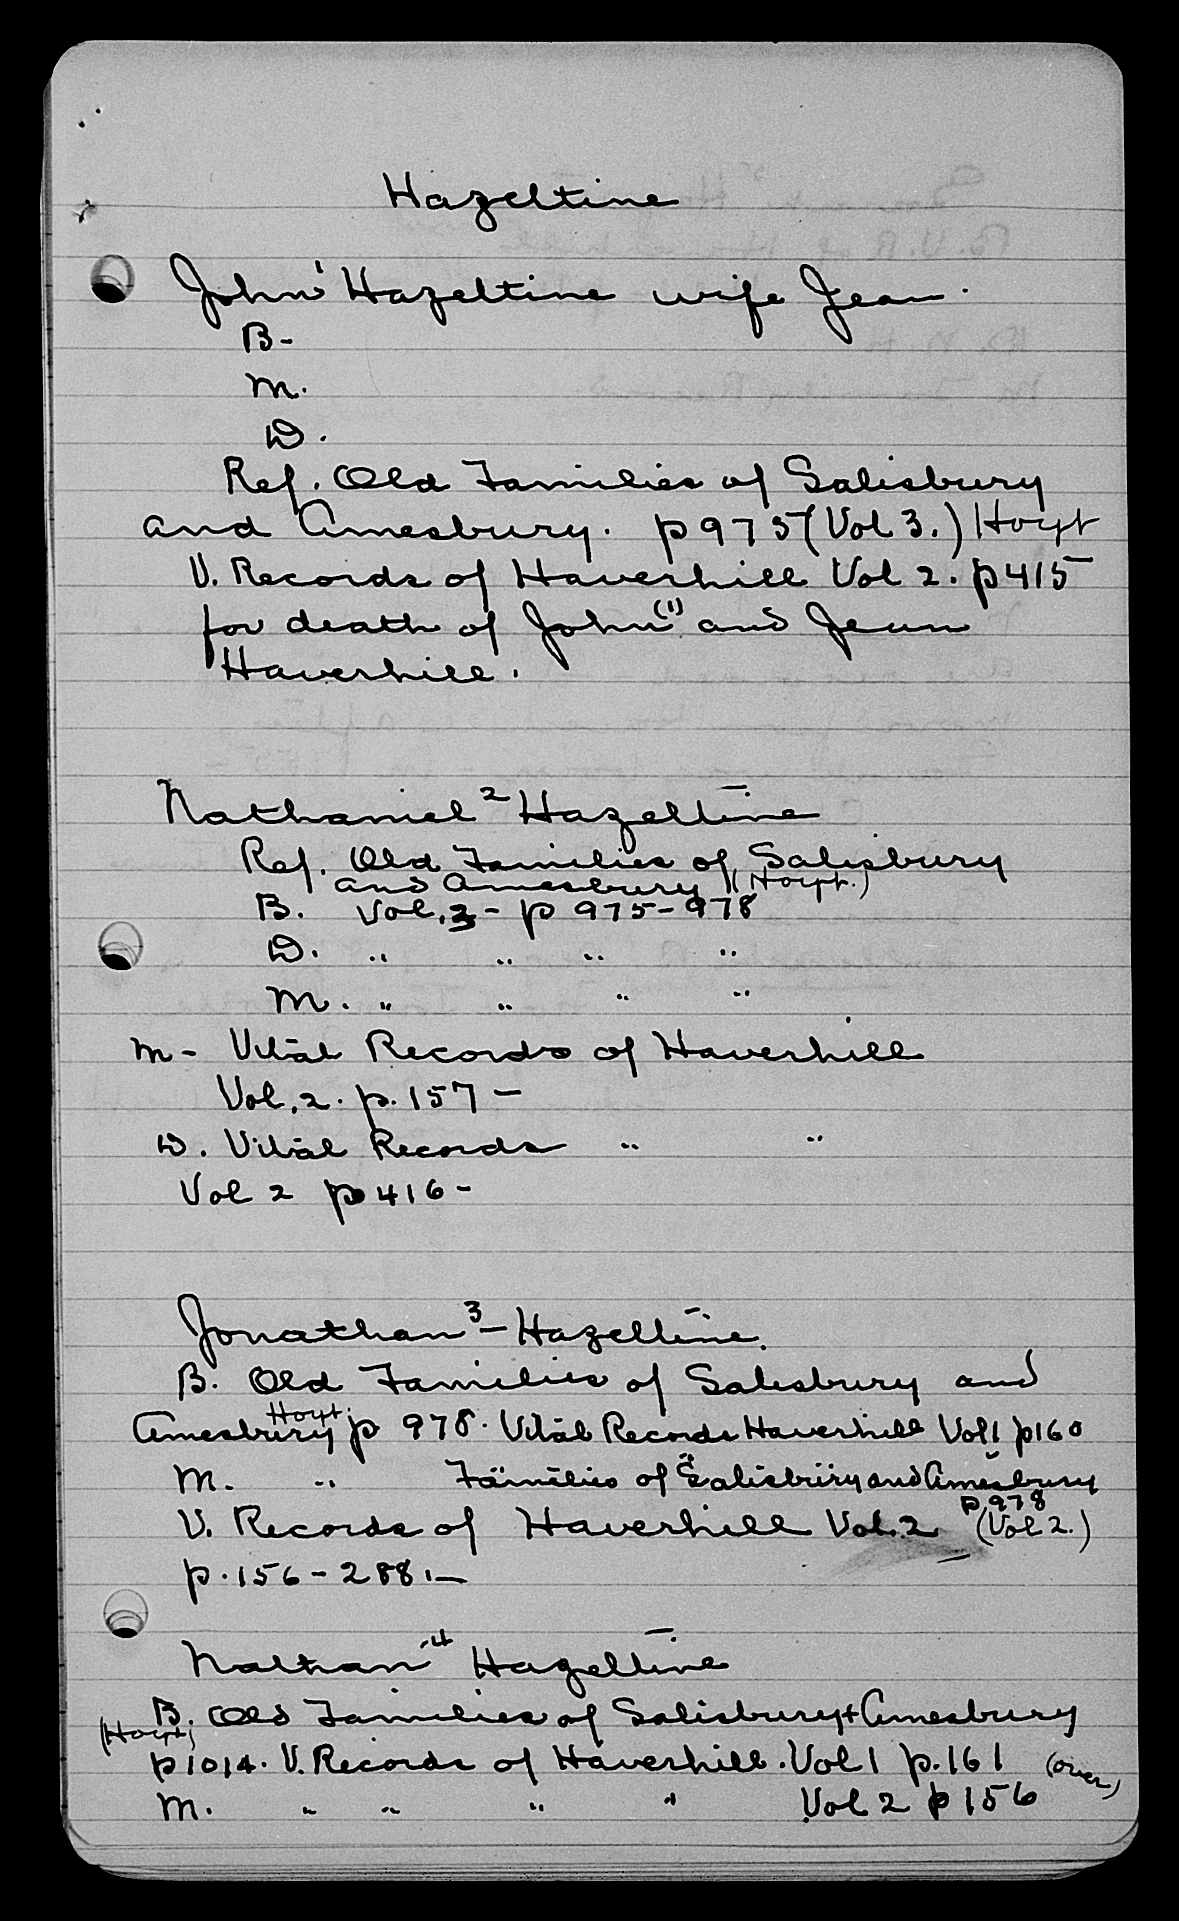 Hazeltine
John¹ Hazeltine wife Jean.
B-
M.
D.
Ref. Old Families of Salisbury
and Amesbury. p 975 (Vol 3.) Hoyt
V. Records of Haverhill Vol 2. p 415
for death of John⁽¹⁾ and Jean
Haverhill.
Nathaniel ² Hazeltine
Ref. Old Families of Salisbury
and Amesbury (Hoyt.)
B. Vol. 3 - p 975-978
D. " " " "
M. " " " "
M - Vital Records of Haverhill
Vol. 2. p. 157 -
D. Vital Records " "
Vol 2 p 416 -
Jonathan ³ - Hazeltine.
B. Old Families of Salisbury and
Hoyt.
Amesbury p 978. Vital Records Haverhill Vol 1 p160
M. " Families of Salisbury and Amesbury
p 978
V. Records of Haverhill Vol. 2 (Vol 2.)
p. 156 - 288. -
Nathan ⁴ Hazeltine
B. Old Families of Salisbury + Amesbury
(Hoyt)
p 1014. V. Records of Haverhill. Vol 1 p. 161 (over)
M. " " " " Vol 2 p 156